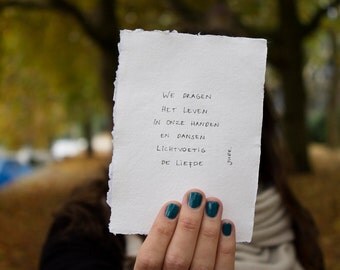 WE DRAGEN
HET LEVEN
IN ONZE HANDEN
EN DANSEN
LICHTVOETIG
DE LIEFDE